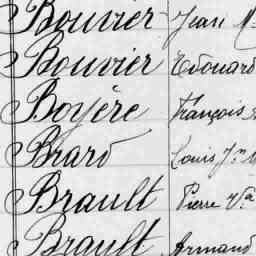 Bouvier Jean M
Bouvier Edouard
Boyère François
Brard Louis Jn
Brault Pierre Va
Brault Armand